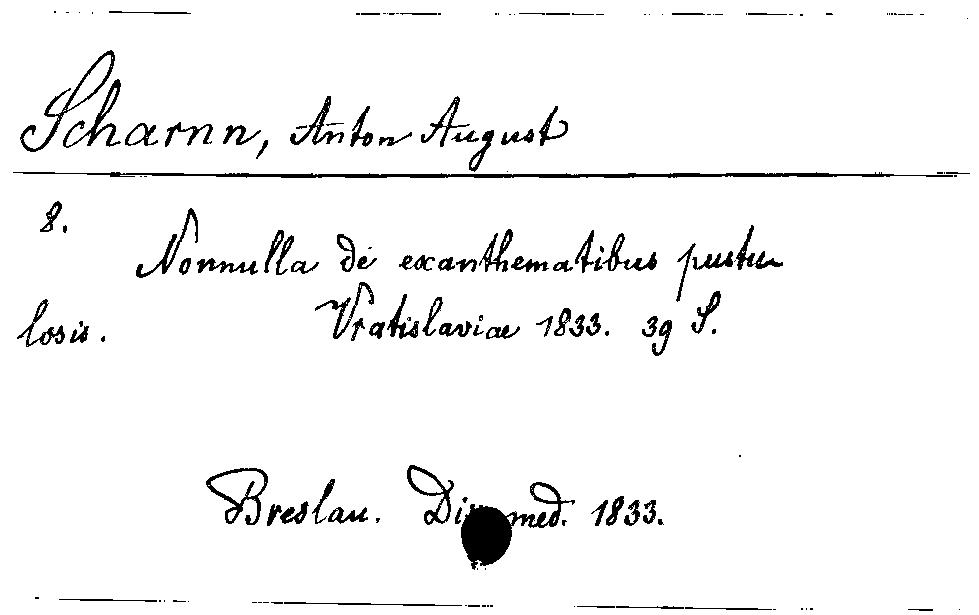 Scharnn, Anton August
8.
Nonnulla de exanthematibus pustu
losis. Vratislaviae 1833. 39 S.
Breslau. Diss. med. 1833.